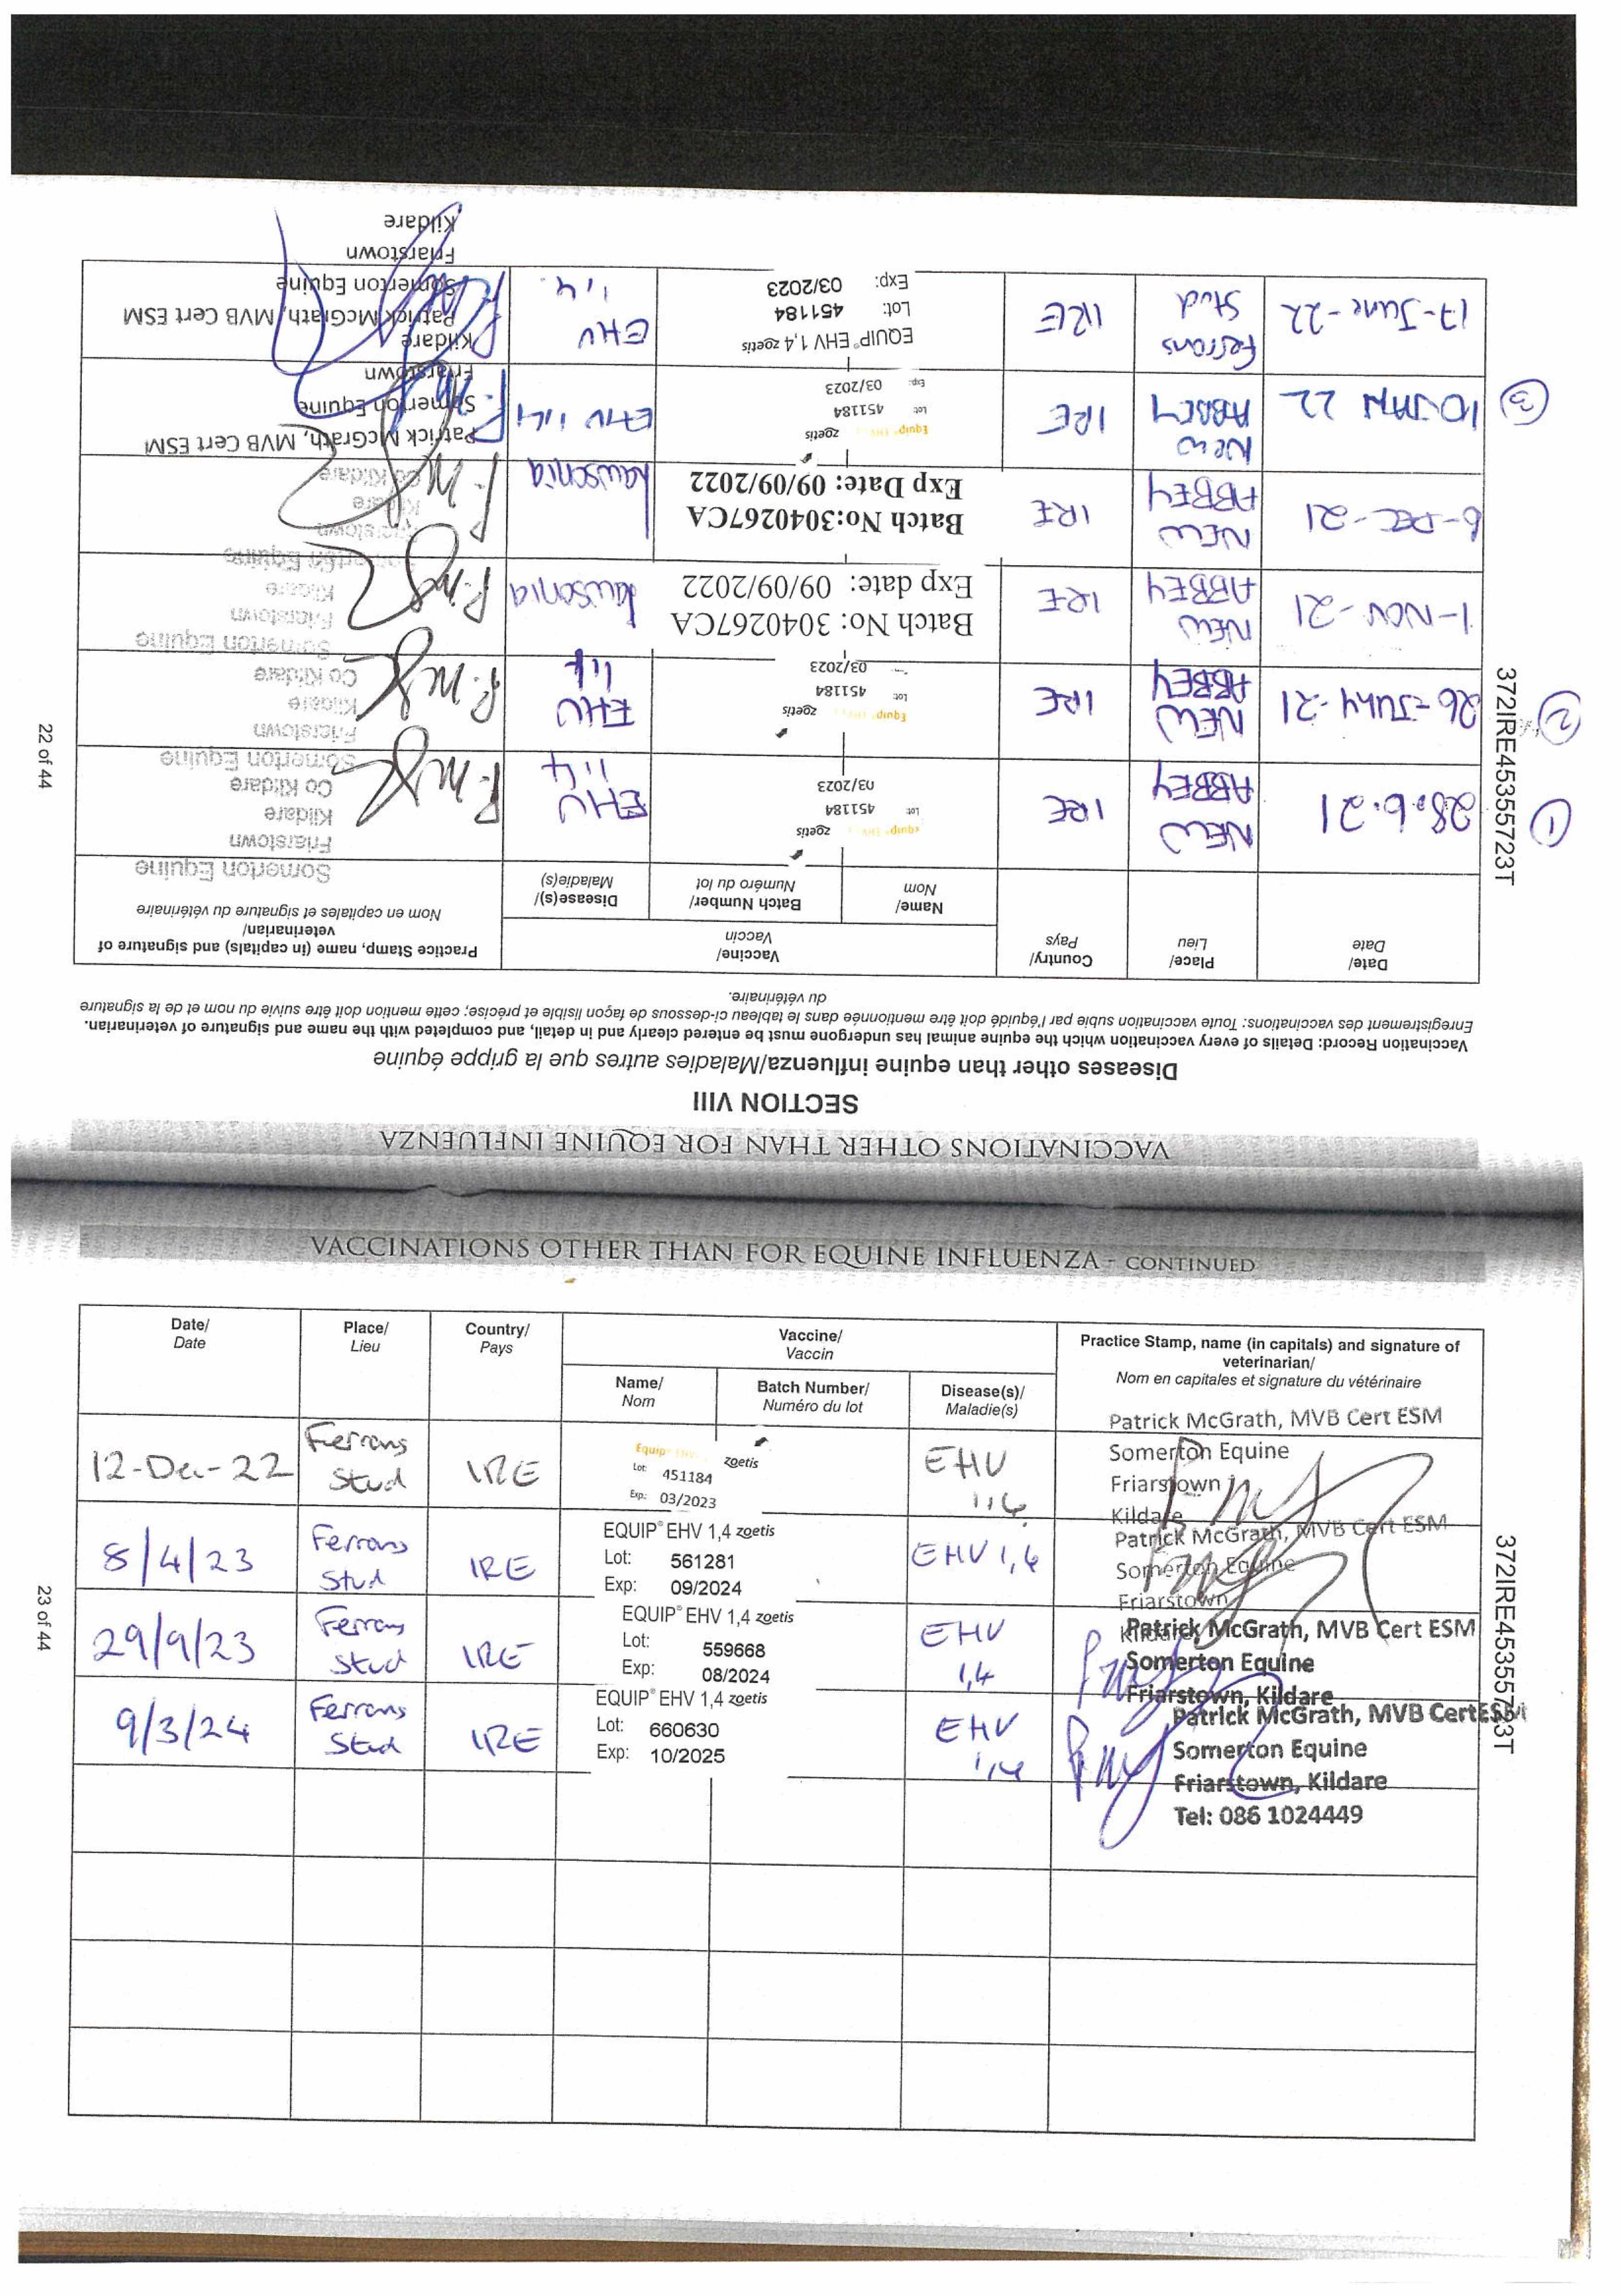 VACCINATIONS OTHER THAN FOR EQUINE INFLUENZA
SECTION VIII
Diseases other than equine influenza/Maladies autres que la grippe équine
Vaccination Record: Details of every vaccination which the equine animal has undergone must be entered clearly and in detail, and completed with the name and signature of veterinarian.
Enregistrement des vaccinations: Toute vaccination subie par l'équidé doit être mentionnée dans le tableau ci-dessous de façon lisible et précise; cette mention doit être suivie du nom et de la signature
du vétérinaire.
Date/ Place/ Country/ Vaccine/ Practice Stamp, name (in capitals) and signature of
Date Lieu Pays Vaccin veterinarian/
Name/ Batch Number/ Disease(s)/ Nom en capitales et signature du vétérinaire
Nom Numéro du lot Maladie(s)
① 28.6.21 NEW ABBEY IRE Equip EHV zoetis
Lot: 451184
03/2023
EHV 1,4
Somerton Equine
Friarstown
Kildare
Co Kildare
② 26-JULY-21 NEW ABBEY IRE Equip EHV zoetis
Lot: 451184
03/2023
EHV 1,4
Somerton Equine
Friarstown
Kildare
Co Kildare
1-NOV-21 NEW ABBEY IRE
Batch No: 3040267CA
Exp date: 09/09/2022
Lawsonia
Somerton Equine
Friarstown
Kildare
6-DEC-21 NEW ABBEY IRE
Batch No:3040267CA
Exp Date: 09/09/2022
Lawsonia
Somerton Equine
Friarstown
Kildare
Co Kildare
③ 10 JAN 22 NEW ABBEY IRE Equip EHV zoetis
Lot: 451184
Exp: 03/2023
EHV 1,4
Patrick McGrath, MVB Cert ESM
Somerton Equine
Friarstown
Kildare
17-June-22 Ferrans Stud IRE
EQUIP® EHV 1,4 zoetis
Lot: 451184
Exp: 03/2023
EHV 1,4
Patrick McGrath, MVB Cert ESM
Somerton Equine
Friarstown
Kildare
372IRE45355723T
22 of 44
VACCINATIONS OTHER THAN FOR EQUINE INFLUENZA - CONTINUED
Date/ Place/ Country/ Vaccine/ Practice Stamp, name (in capitals) and signature of
Date Lieu Pays Vaccin veterinarian/
Name/ Batch Number/ Disease(s)/ Nom en capitales et signature du vétérinaire
Nom Numéro du lot Maladie(s)
12-Dec-22 Ferrans Stud IRE
Equip EHV zoetis
Lot: 451184
Exp: 03/2023
EHV 1,4
Patrick McGrath, MVB Cert ESM
Somerton Equine
Friarstown
Kildare
8/4/23 Ferrans Stud IRE
EQUIP® EHV 1,4 zoetis
Lot: 561281
Exp: 09/2024
EHV 1,4
Patrick McGrath, MVB Cert ESM
Somerton Equine
Friarstown
Kildare
29/9/23 Ferrans Stud IRE
EQUIP® EHV 1,4 zoetis
Lot: 559668
Exp: 08/2024
EHV 1,4
Patrick McGrath, MVB Cert ESM
Somerton Equine
Friarstown, Kildare
9/3/24 Ferrans Stud IRE
EQUIP® EHV 1,4 zoetis
Lot: 660630
Exp: 10/2025
EHV 1,4
Patrick McGrath, MVB CertESM
Somerton Equine
Friarstown, Kildare
Tel: 086 1024449
372IRE45355723T
23 of 44